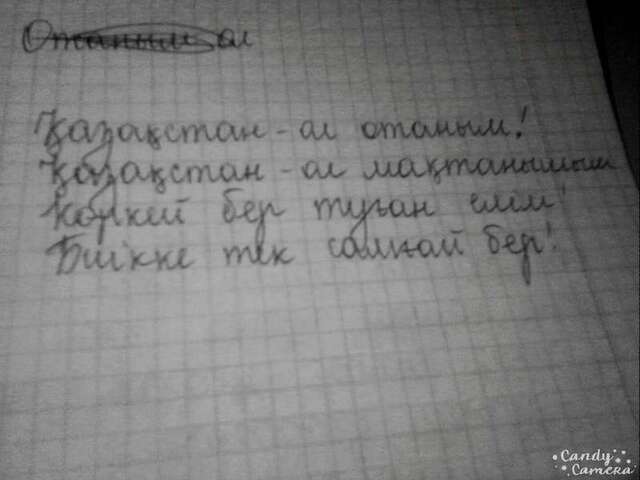 Отаным ол
Қазақстан - ол отаным!
Қазақстан - ол мақтанышым
Көркей бер туған елім!
Биікке тек самғай бер!
Candy
Camera